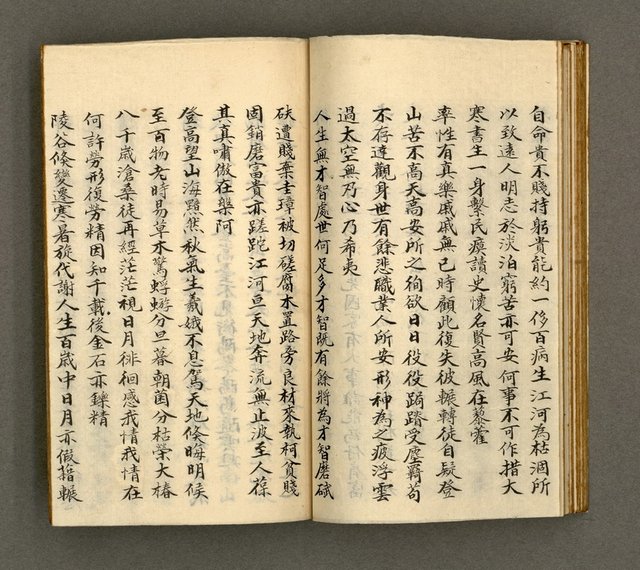 自命貴不賤持躬貴能約一侈百病生江河為枯涸所
以致遠人明志於淡泊窮苦亦可安何事不可作措大
寒書生一身繫民瘼讀史懷名賢高風在藜藿
率性有真樂戚戚無已時顧此復失彼輾轉徒自疑登
山苦不高天高安所之徇欲日日役役跼蹐受塵羈苟
不存達觀身世有餘悲職業人所安形神為之疲浮雲
過太空無乃心乃希夷
人生無才智處世何足多才智既有餘將為才智磨碔
砆遭賤棄圭璋被切磋腐木置路旁良材來執柯貧賤
固銷磨富貴亦蹉跎江河亘天地奔流無止波至人葆
其真嘯傲在槃阿
登高望山海黯然秋氣生羲娥不息駕天地倏晦明候
至百物老時易草木驚蜉蝣分旦暮朝菌分枯榮大椿
八千歲滄桑徒再經茫茫視日月徘徊感我情我情在
何許勞形復勞精因知千載後金石亦鑠精
陵谷倏變遷寒暑旋代謝人生百歲中日月亦假藉輾